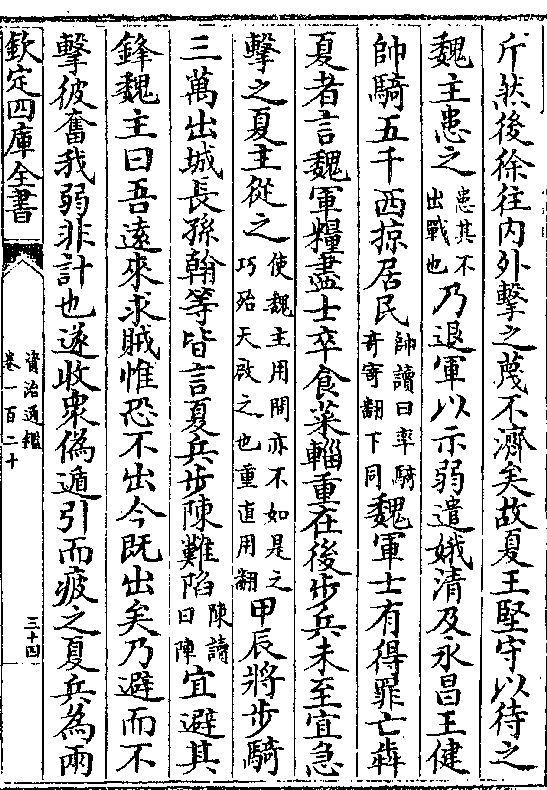 斤然後徐往内外擊之蔑不濟矣故夏王堅守以待之
魏主患之患其不出戰也乃退軍以示弱遣娥清及永昌王健
帥騎五千西掠居民帥讀曰率騎奇寄翻下同魏軍士有得罪亡犇
夏者言魏軍糧盡士卒食菜輜重在後步兵未至宜急
擊之夏主從之使魏主用間亦不如是之巧殆天啟之也重直用翻甲辰將步騎
三萬出城長孫翰等皆言夏兵步陳難陷陳讀曰陣宜避其
鋒魏主曰吾逺來求賊惟恐不出今既出矣乃避而不
擊彼奮我弱非計也遂收衆偽遁引而疲之夏兵為兩
欽定四庫全書
資治通鑑
卷一百二十
三十四